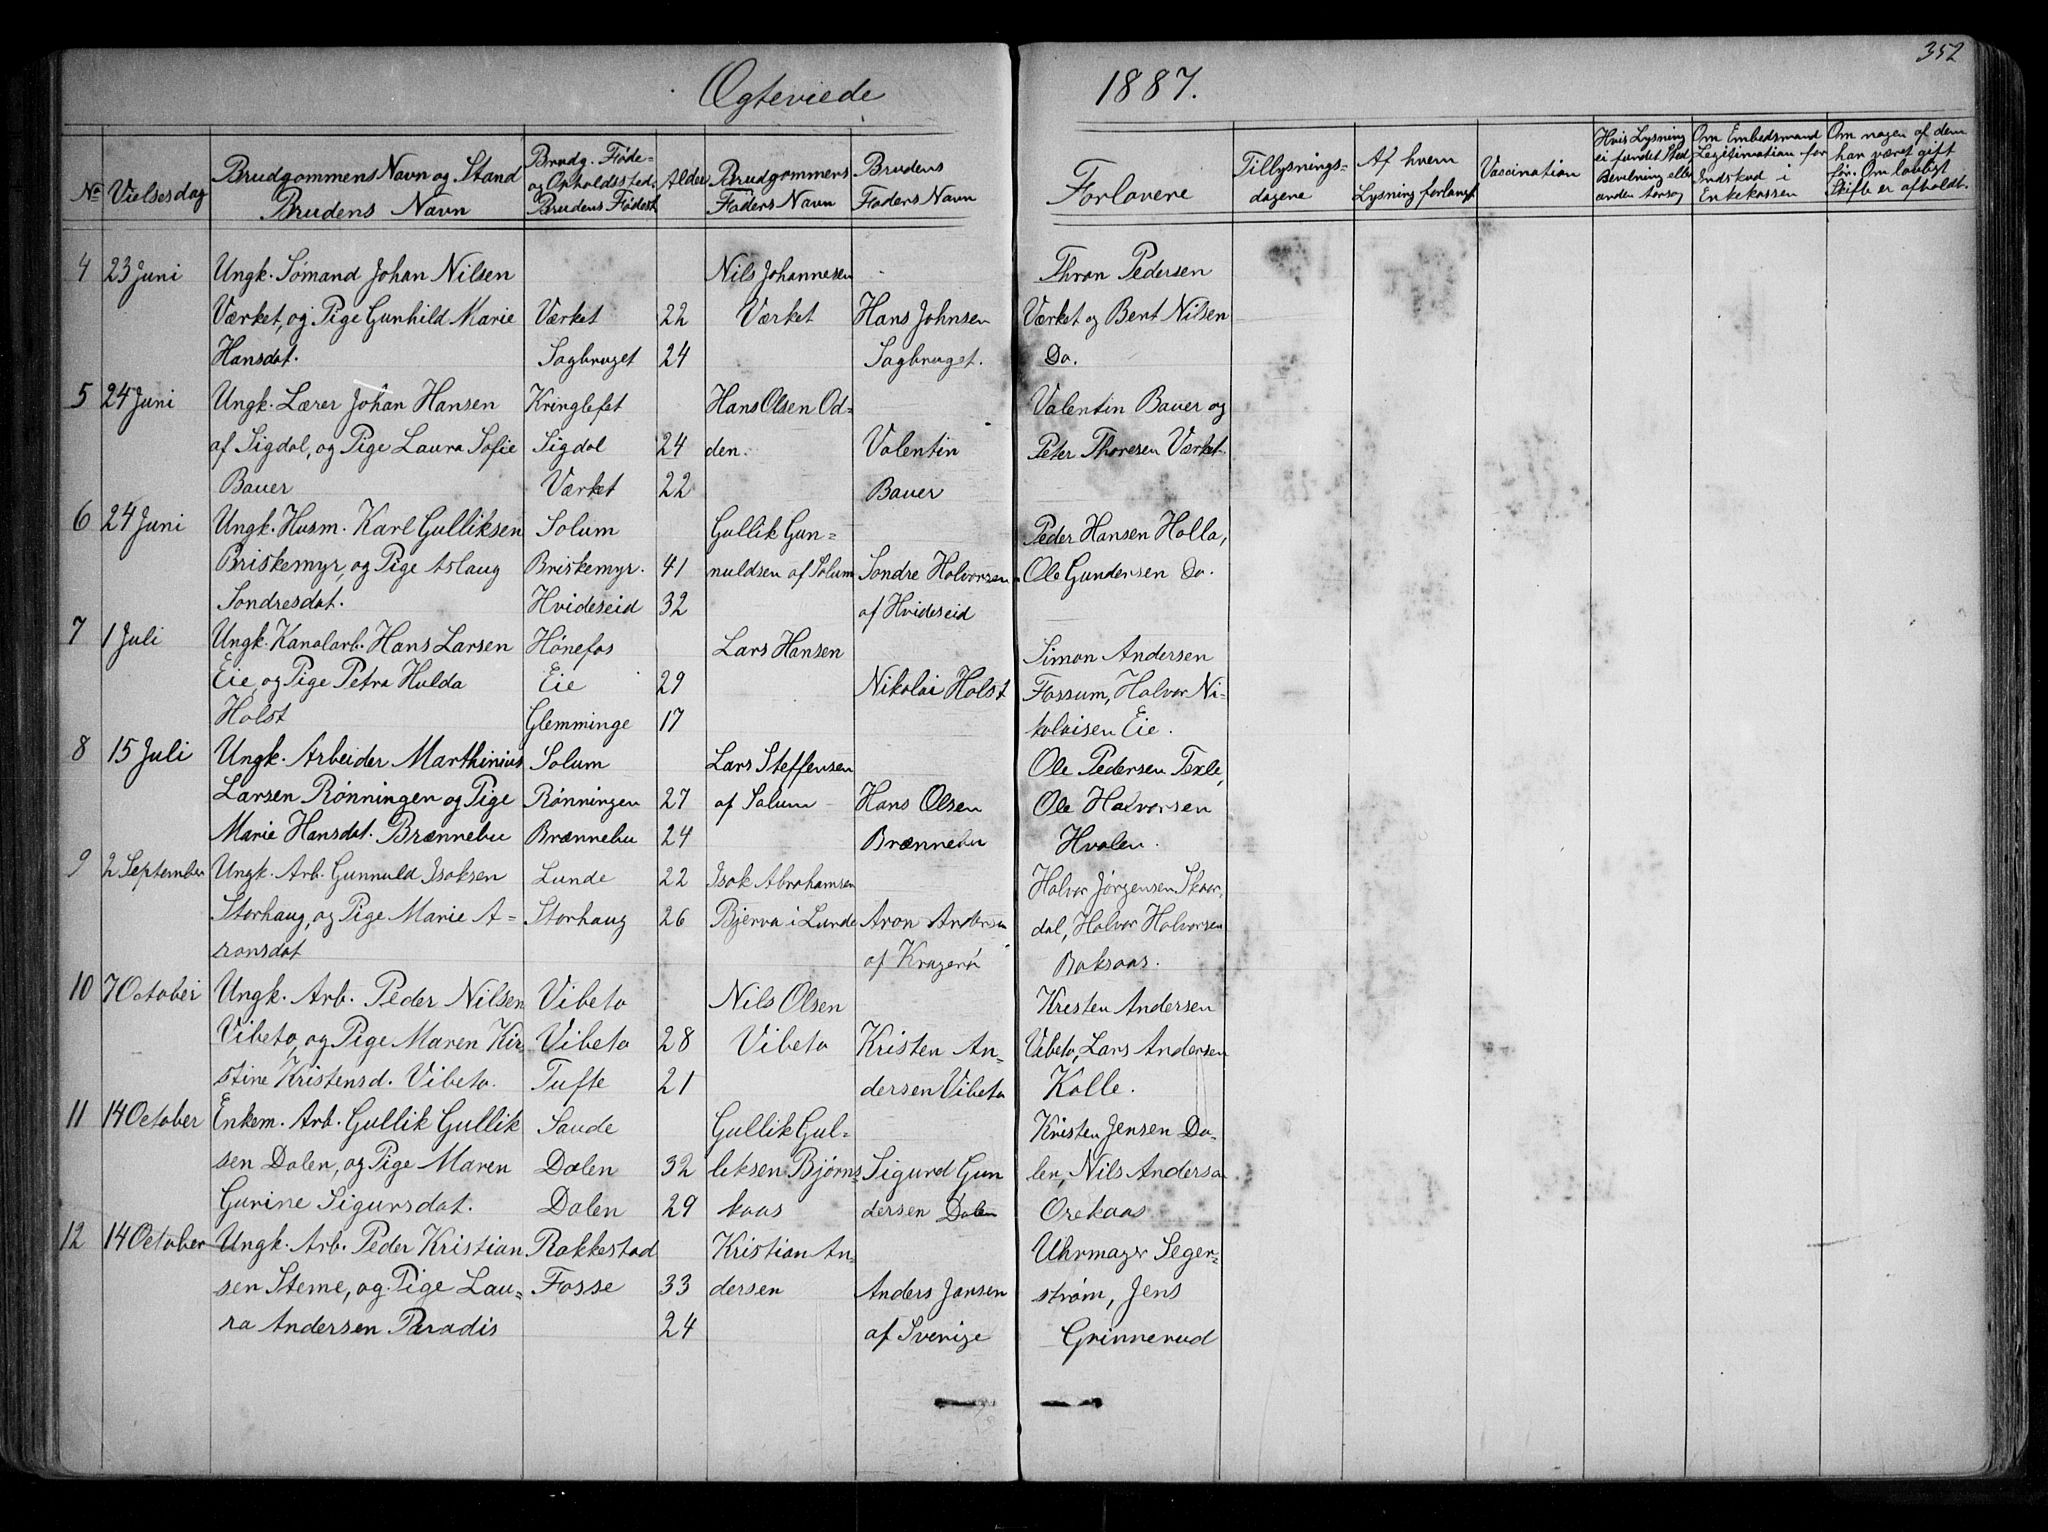 352
Ægteviede 1887.
No Vielsesdag Brudgommens Navn og Stand Brudens Navn Brudg. Føde- og Opholdssted. Brudens Fødest Alder Brudgommens Faders Navn Brudens Faders Navn Forlovere Tillysnings-dagene Af hvem Lysning forlangt Vaccination Hvis Lysning ei fundet Sted Bevilning eller anden Aarsag Om Embedsmand Legitimation for Indskud i Enkekassen Om nogen af dem har været gift før. Om lovligt Skifte er afholdt.
4 23 Juni Ungk. Sømand Johan Nilsen Nils Johannesen Thron Pedersen
Værket, og Pige Gunhild Marie Værket 22 Værket Hans Johnsen Værket og Bent Nilsen
Hansdat. Sagbruget 24 Sagbruget. Do.
5 24 Juni Ungk. Lærer Johan Hansen Kringlefet Hans Olsen Od- Valentin Bauer og
af Sigdal, og Pige Laura Sofie Sigdal 24 den. Valentin Peter Thoresen Værket.
Bauer Værket 22 Bauer
6 24 Juni Ungk. Husm. Karl Gulliksen Solum Gullik Gun- Peder Hansen Holla,
Briskemyr, og Pige Aslaug Briskemyr. 41 nuldsen af Solum Sondre Halvorsen Ole Gundersen Do.
Sondresdat. Hvideseid 32 af Hvideseid
7 1 Juli Ungk. Kanalarb. Hans Larsen Hønefos Lars Hansen Simon Andersen
Eie, og Pige Petra Hulda Eie 29 Nikolai Holst Fossum, Halvor Ni-
Holst Glemminge 17 kolaisen Eie.
8 15 Juli Ungk. Arbeider Marthinius Solum Lars Steffensen Ole Pedersen Texle,
Larsen Rønningen og Pige Rønningen 27 af Solum Hans Olsen Ole Halvorsen
Marie Hansdat. Brænnebu Brænnebu 24 Brænnebu Hvalen.
9 2 September Ungk. Arb. Gunnuld Isaksen Lunde 22 Isak Abrahamsen Halvor Jørgensen Skaar,
Storhaug, og Pige Marie A- Storhaug 26 Bjerva i Lunde Aron Andersen dal, Halvor Halvorsen
ronsdat af Kragerø Baksaas.
10 7 October Ungk. Arb. Peder Nilsen Vibeto Nils Olsen Kristen Andersen
Vibeto, og Pige Maren Kir- Vibeto 28 Vibeto Kristen An- Vibeto, Lars Andersen
stine Kristensd. Vibeto. Tufte 21 dersen Vibeto Kolle.
11 14 October Enkem. Arb. Gullik Gullik Saude Gullik Gul- Kristen Jensen Da-
sen Dalen, og Pige Maren Dalen 32 leksen Bjørns- Sigurd Gun len, Nils Anderse
Gurine Sigursdat. Dalen 29 kaas dersen Dalen Orekaas
12 14 October Ungk. Arb. Peder Kristian Rakkestad Kristian An- Uhrmager Seger-
sen Stene, og Pige Lau- Fosse 33 dersen Anders Jansen strøm, Jens
ra Andersen Paradis 24 af Sverige Grinnerud